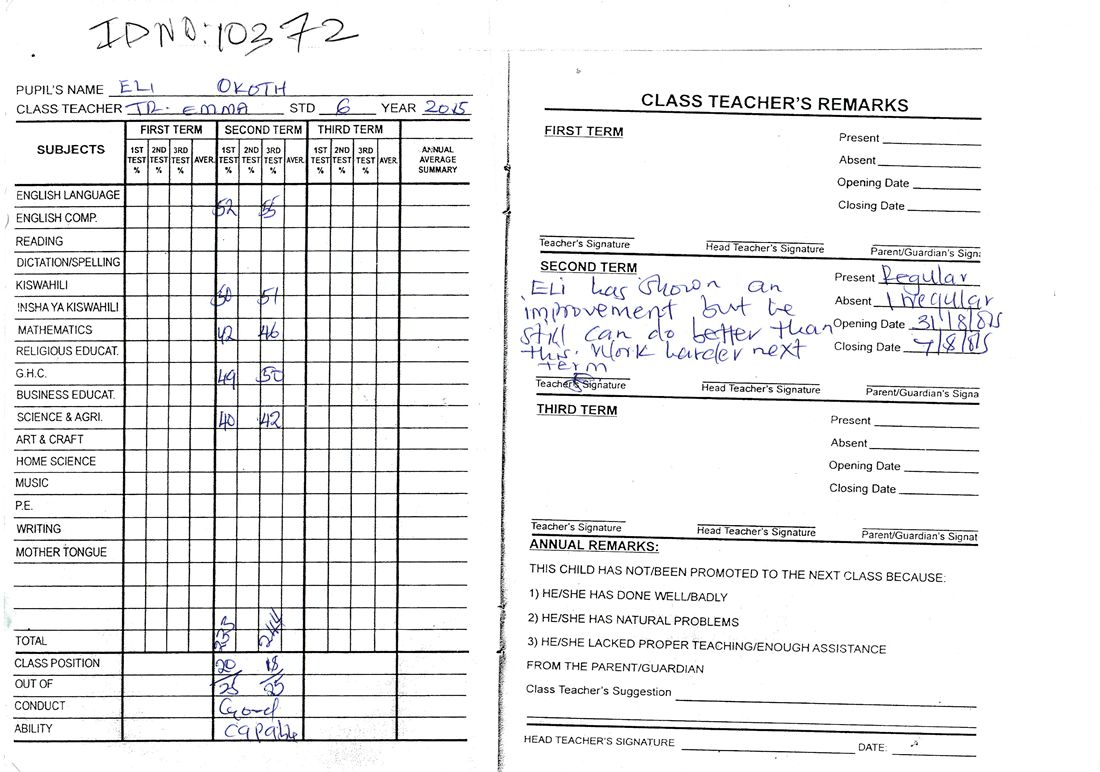 IDNO:10372
PUPIL'S NAME ELI OKOTH
CLASS TEACHER TR. EMMA STD 6 YEAR 2015
SUBJECTS FIRST TERM SECOND TERM THIRD TERM ANNUAL AVERAGE SUMMARY
1ST TEST % 2ND TEST % 3RD TEST % AVER. 1ST TEST % 2ND TEST % 3RD TEST % AVER. 1ST TEST % 2ND TEST % 3RD TEST % AVER.
ENGLISH LANGUAGE
ENGLISH COMP. 52 55
READING
DICTATION/SPELLING
KISWAHILI
INSHA YA KISWAHILI 50 51
MATHEMATICS 42 46
RELIGIOUS EDUCAT.
G.H.C. 49 50
BUSINESS EDUCAT.
SCIENCE & AGRI. 40 42
ART & CRAFT
HOME SCIENCE
MUSIC
P.E.
WRITING
MOTHER TONGUE
TOTAL 233 244
CLASS POSITION 20 18
OUT OF 25 25
CONDUCT Good
ABILITY Capable
CLASS TEACHER'S REMARKS
FIRST TERM
Present
Absent
Opening Date
Closing Date
Teacher's Signature Head Teacher's Signature Parent/Guardian's Signa
SECOND TERM
Eli has shown an
improvement but he
still can do better than
this. Work harder next
term
Present Regular
Absent Irregular
Opening Date 31/8/015
Closing Date 7/8/015
Teacher's Signature Head Teacher's Signature Parent/Guardian's Signa
THIRD TERM
Present
Absent
Opening Date
Closing Date
Teacher's Signature Head Teacher's Signature Parent/Guardian's Signat
ANNUAL REMARKS:
THIS CHILD HAS NOT/BEEN PROMOTED TO THE NEXT CLASS BECAUSE:
1) HE/SHE HAS DONE WELL/BADLY
2) HE/SHE HAS NATURAL PROBLEMS
3) HE/SHE LACKED PROPER TEACHING/ENOUGH ASSISTANCE
FROM THE PARENT/GUARDIAN
Class Teacher's Suggestion
HEAD TEACHER'S SIGNATURE DATE: